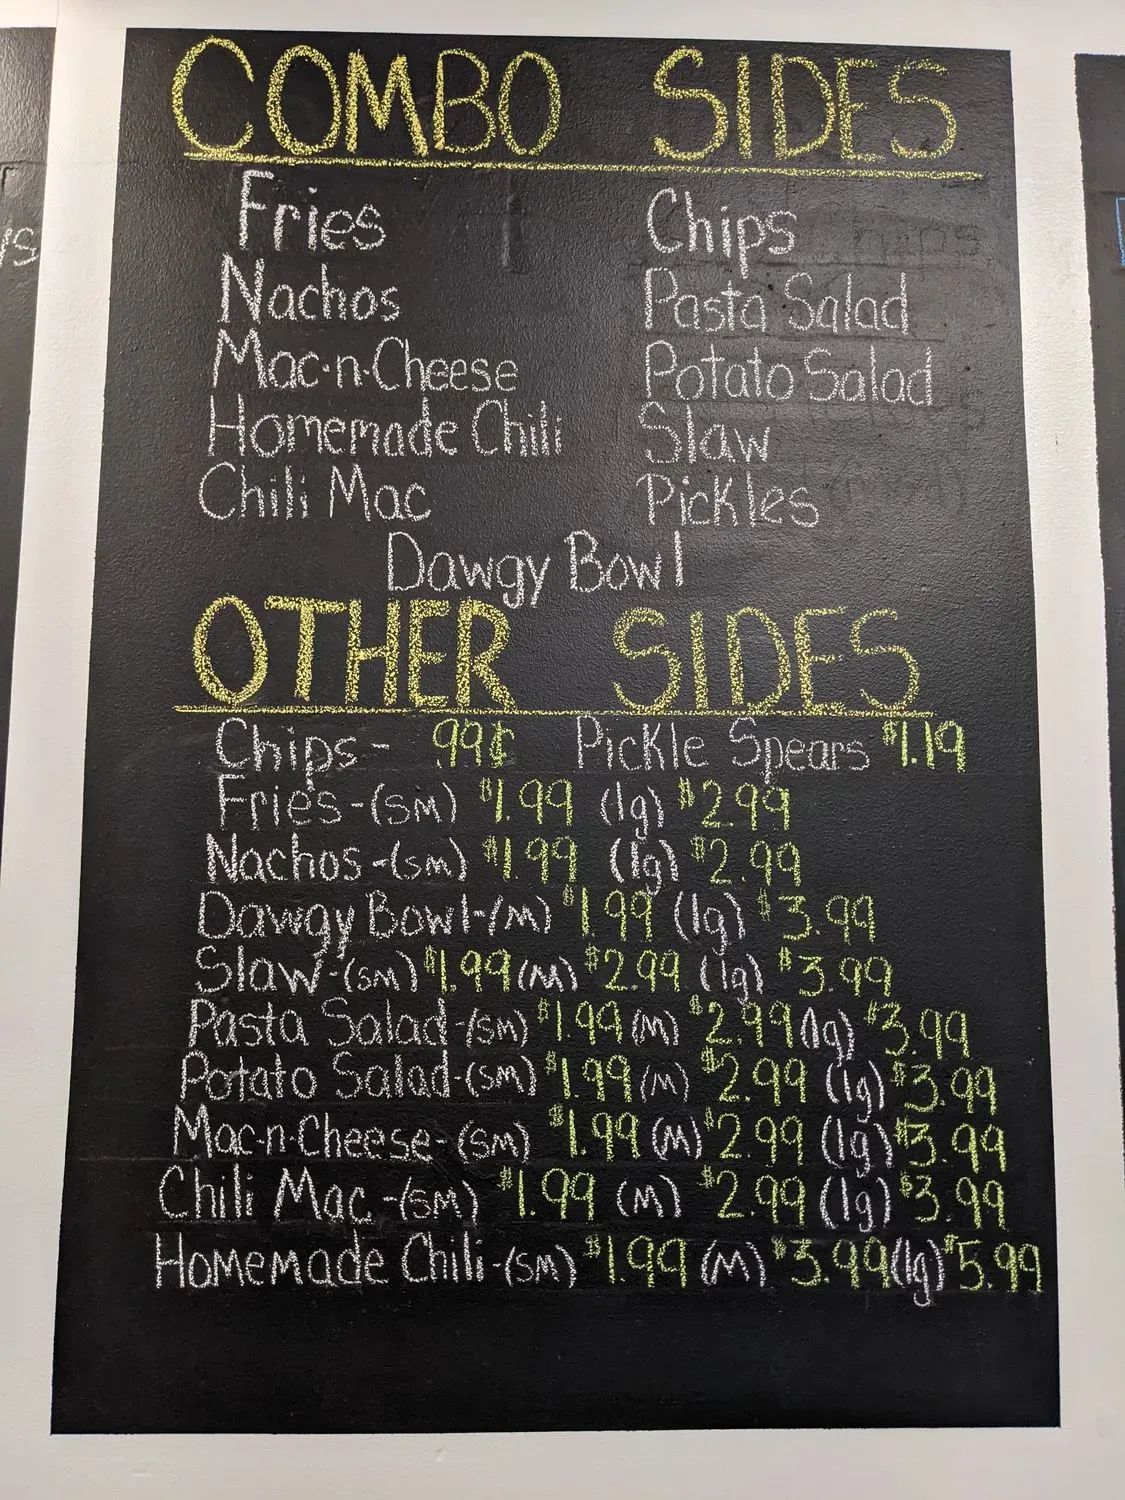 COMBO SIDES
Fries Chips
Nachos Pasta Salad
Mac-n-Cheese Potato Salad
Homemade Chili Slaw
Chili Mac Pickles
Dawgy Bowl
OTHER SIDES
Chips - .99¢ Pickle Spears $1.19
Fries - (sm) $1.99 (lg) $2.99
Nachos - (sm) $1.99 (lg) $2.99
Dawgy Bowl - (M) $1.99 (lg) $3.99
Slaw - (sm) $1.99 (M) $2.99 (lg) $3.99
Pasta Salad - (sm) $1.99 (M) $2.99 (lg) $3.99
Potato Salad - (sm) $1.99 (M) $2.99 (lg) $3.99
Mac-n-Cheese - (sm) $1.99 (M) $2.99 (lg) $3.99
Chili Mac - (sm) $1.99 (M) $2.99 (lg) $3.99
Homemade Chili - (sm) $1.99 (M) $3.99 (lg) $5.99